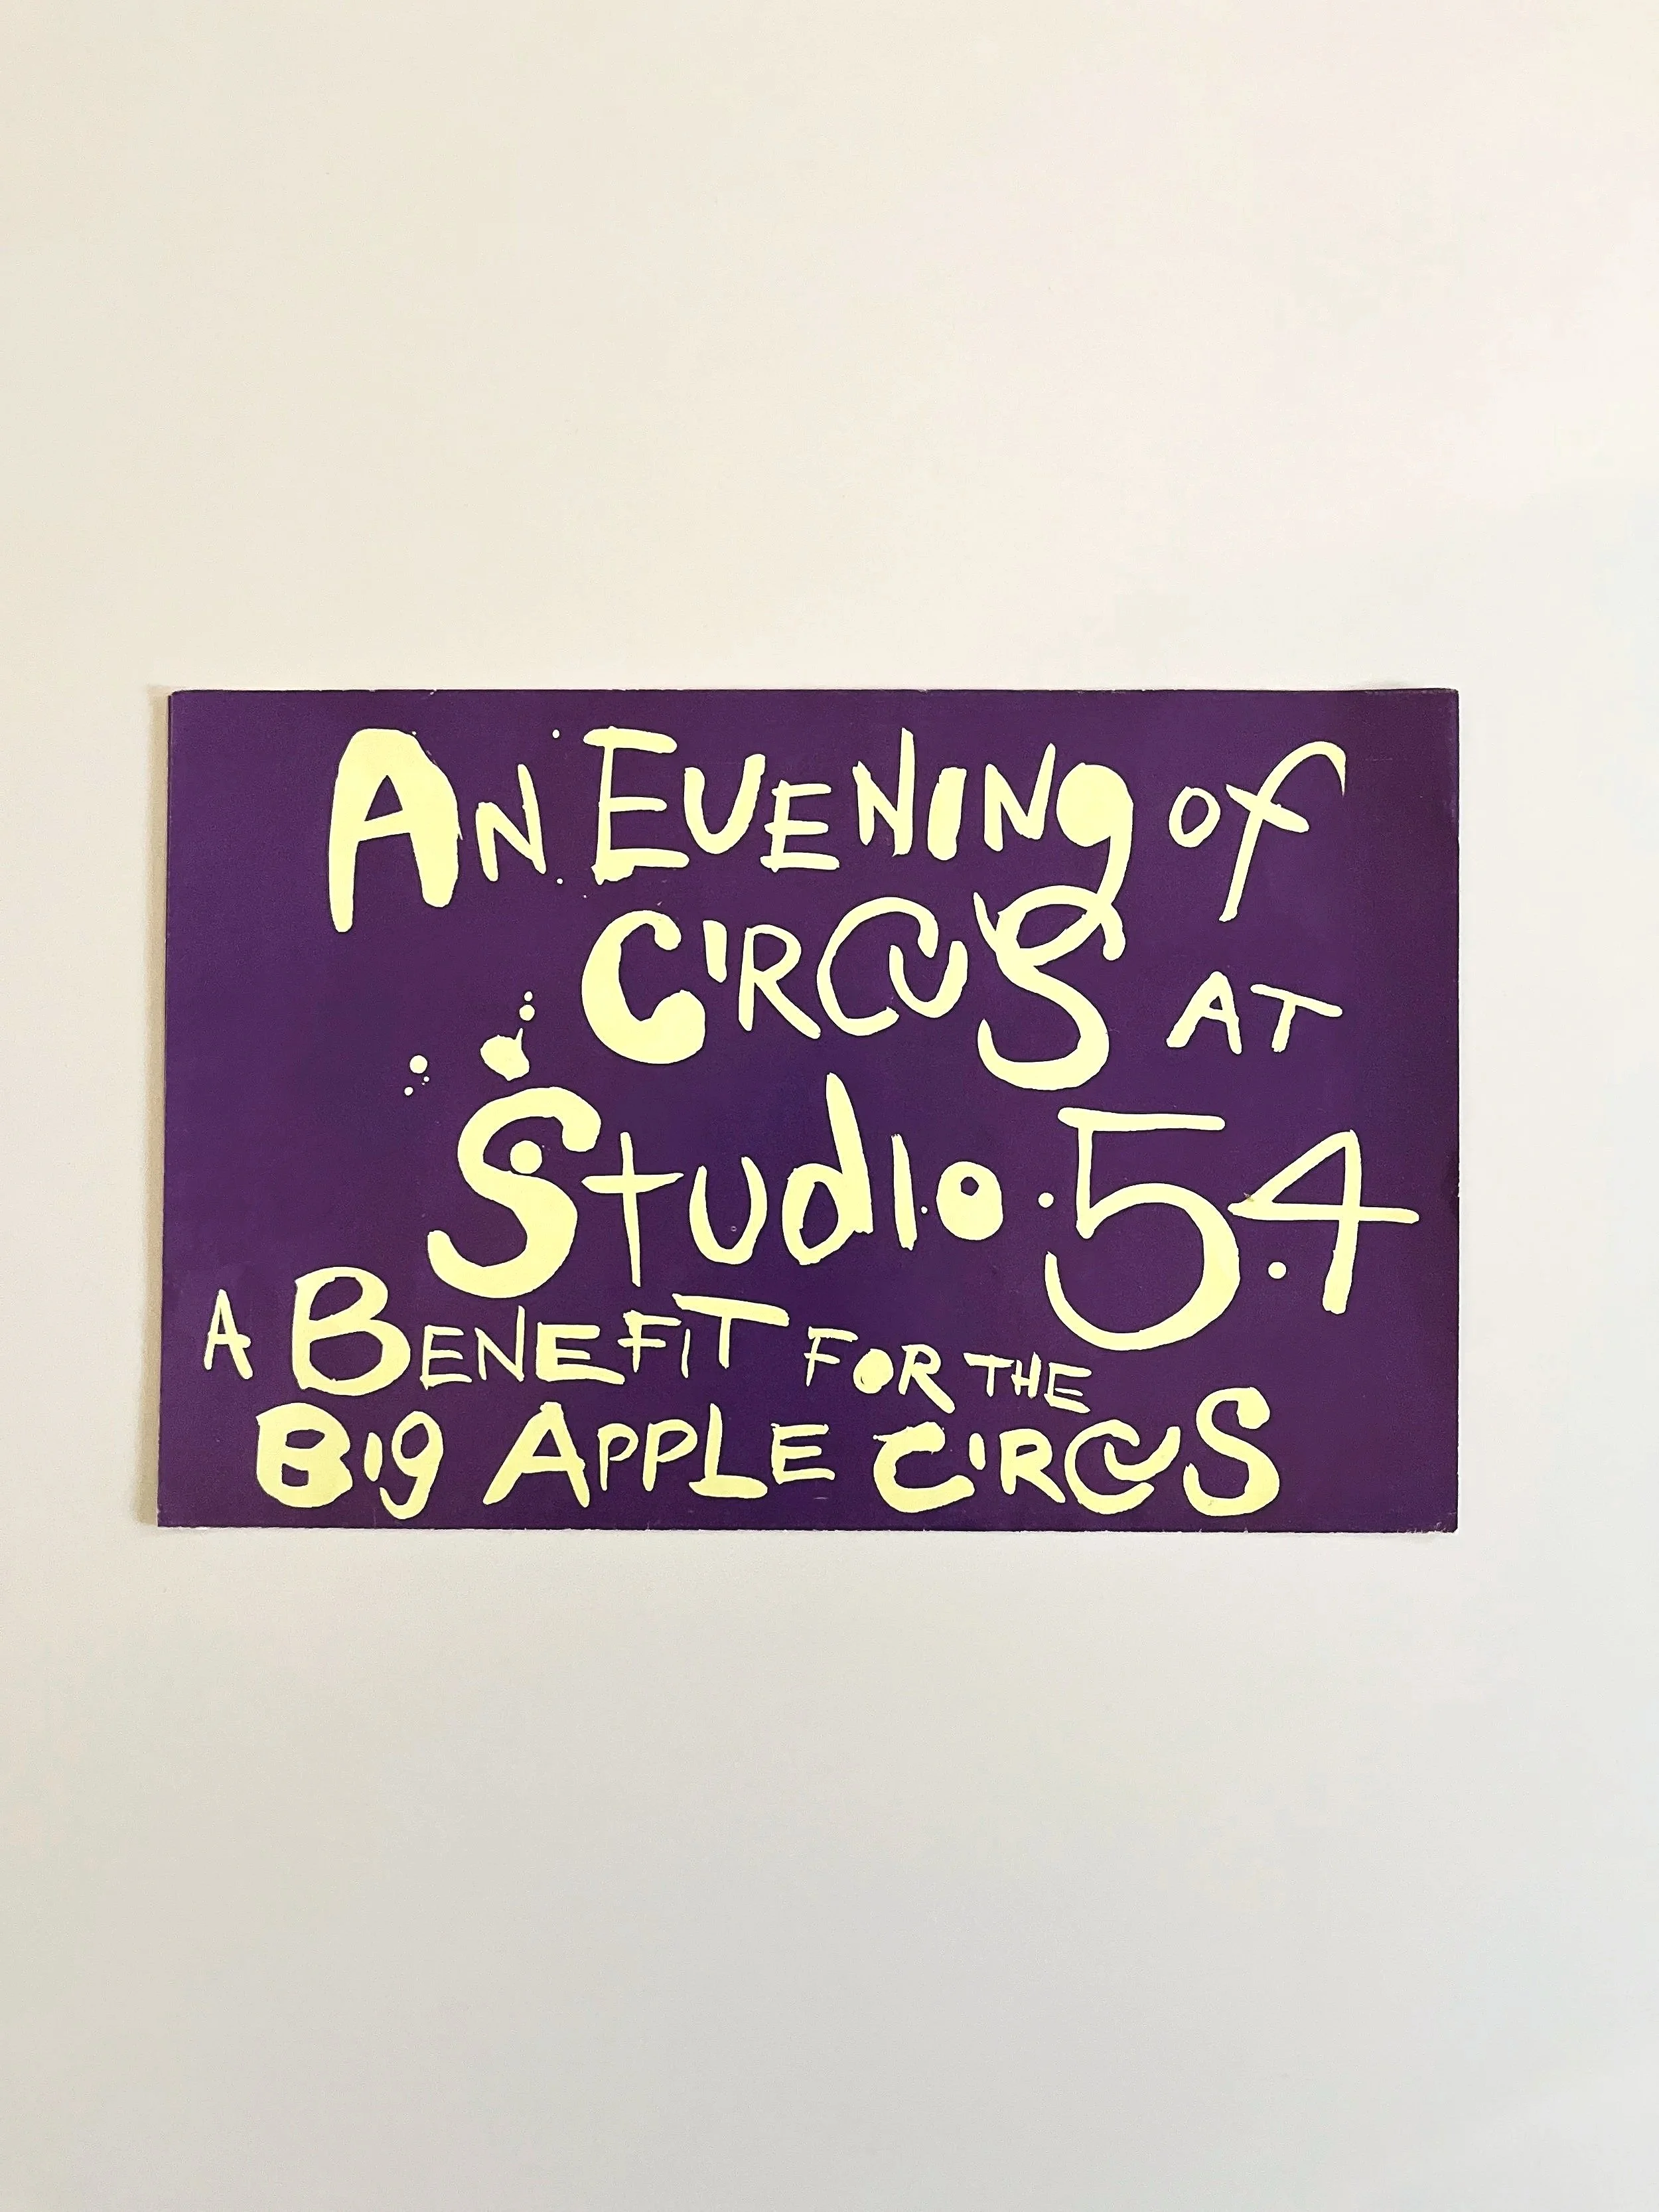 An Evening of
Circus at
Studio 54
A Benefit for the
Big Apple Circus